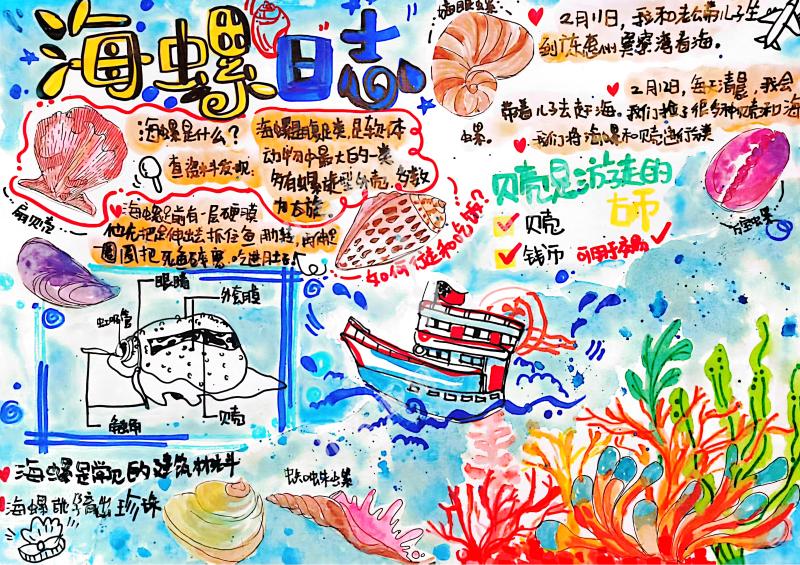 海螺日志
猫眼螺
2月11日，我和老公带儿子坐
到广东惠州巽寮湾看海。
2月12日，每天清晨，我会
带着儿子去赶海。我们捡了很多种贝壳和海
螺。
我们将海螺和贝壳进行分类
海螺是什么？
查资料发现：
海螺是腹足类，是软体
动物中最大的一类
多有螺旋型外壳，多数
为右旋。
扇贝壳
海螺足前有一层硬膜
圆圈把
如何行走和吃饭？
贝壳是游走的
古币
贝壳
钱币 可用于交易
宝贝螺
眼睛
外套膜
虹吸管
触角
贝壳
海螺是常见的建筑材料
海螺能孕育出珍珠
蜘蛛螺